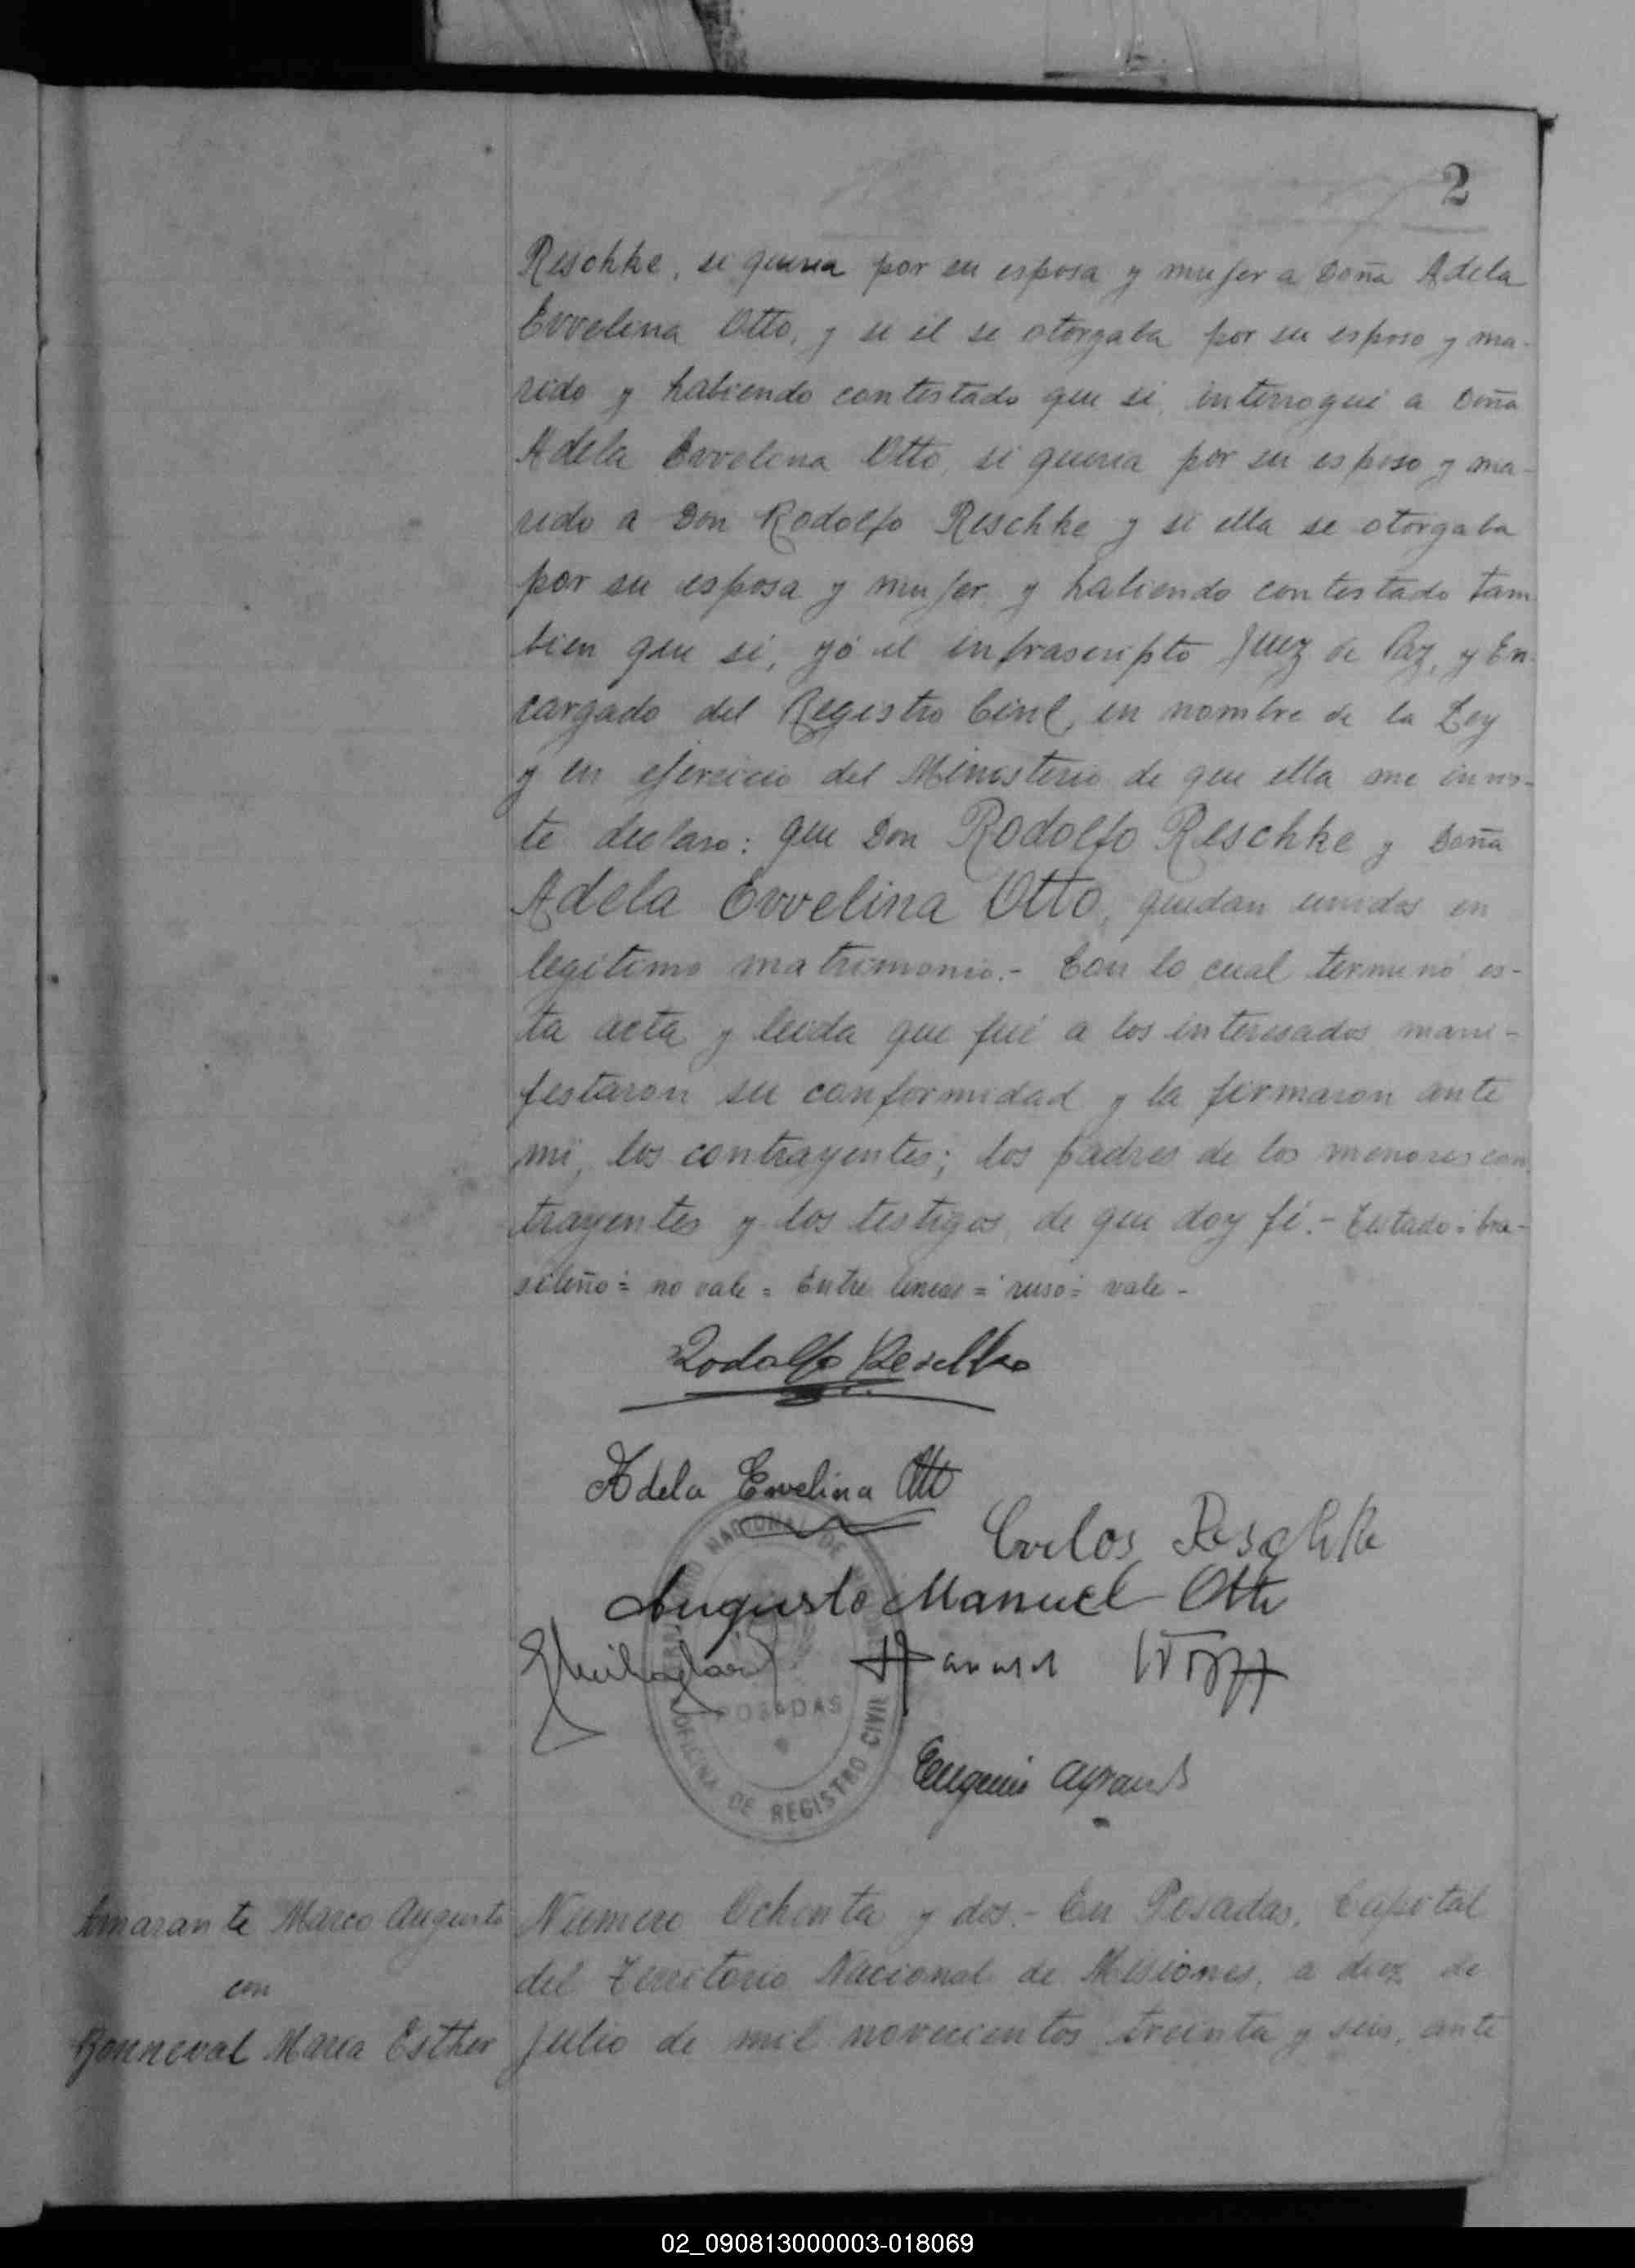 2
Reschke, si queria por su esposa y mujer a Doña Adela
Evvelina Otto, y si él se otorgaba por su esposo y ma-
rido y habiendo contestado que si, interrogué a Doña
Adela Evvelina Otto, si queria por su esposo y ma-
rido a Don Rodolfo Reschke y si ella se otorgaba
por su esposa y mujer, y habiendo contestado tam
bien que si, yó el infrascripto Juez de Paz, y En-
cargado del Registro Civil, en nombre de la Ley
y en ejercicio del Ministerio de que ella me invis-
te declaro: que Don Rodolfo Reschke y Doña
Adela Evvelina Otto, quedan unidos en
legitimo matrimonio.- Con lo cual terminó es-
ta acta y leida que fué a los interesados mani-
festaron su conformidad y la firmaron ante
mi, los contrayentes; los padres de los menores con
trayentes y los testigos, de que doy fé.- Testado: bra-
sileño= no vale = Entre lineas = ruso= vale -
Rodolfo Reschke
Adela Evvelina Otto
Carlos Reschke
Augusto Manuel Otto
TERRITORIO NACIONAL DE MISIONES
POSADAS
OFICINA DE REGISTRO CIVIL
Eugenio
Amarante Marco Augusto
con
Bonneval Maria Esther
Número Ochenta y dos.- En Posadas, Capital
del Territorio Nacional de Misiones, a diez de
Julio de mil novecientos treinta y seis, ante
02_090813000003-018069